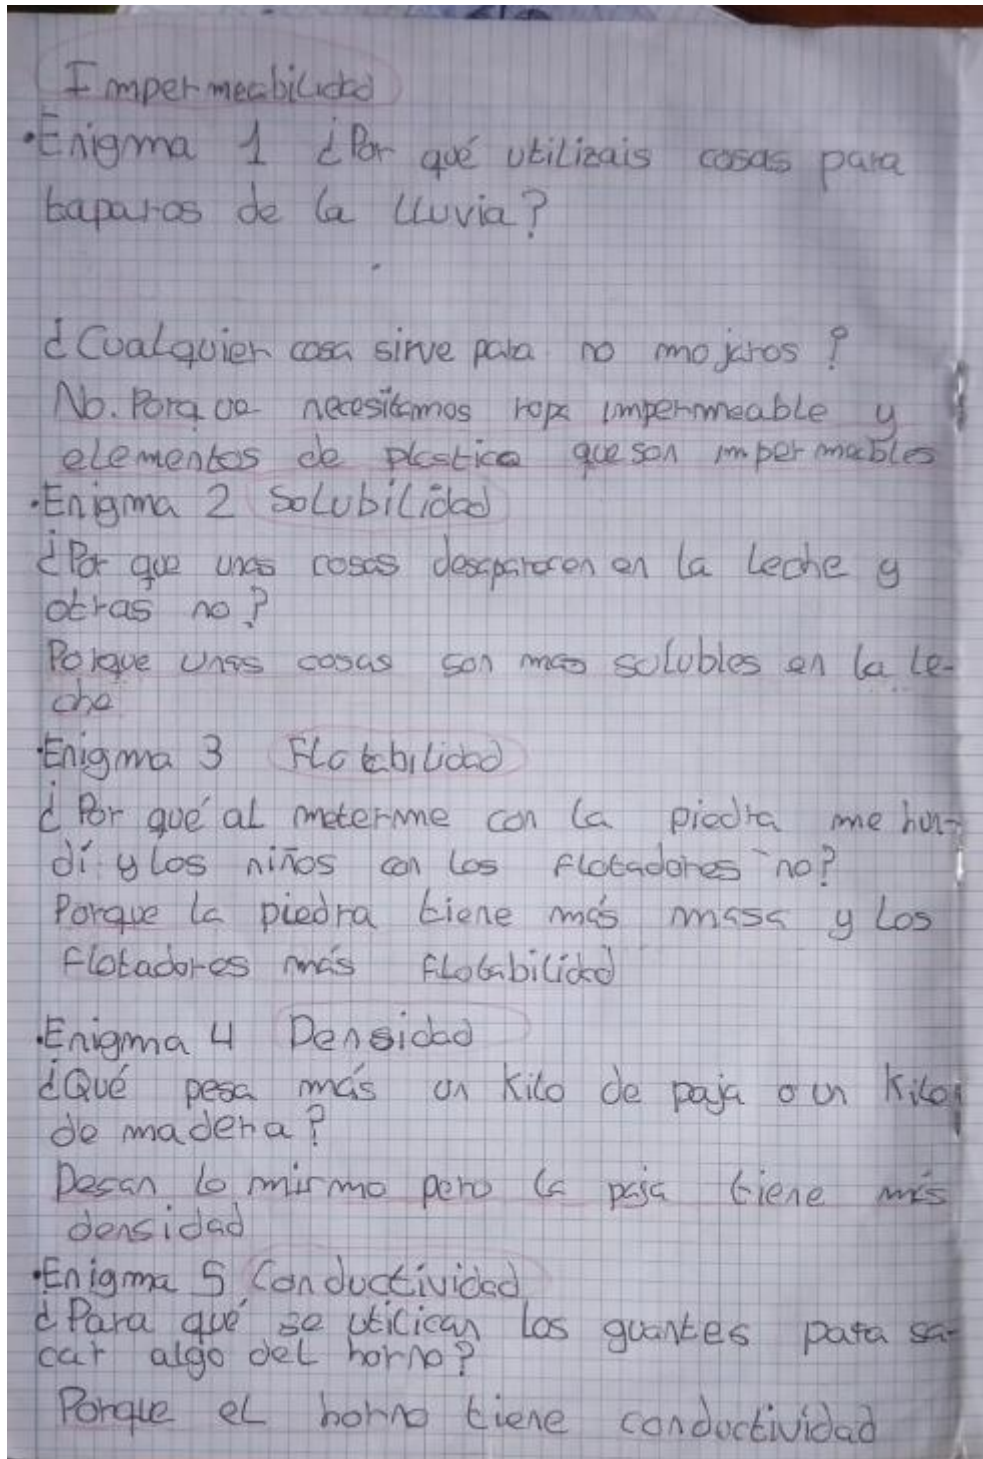 Impermeabilidad
·Enigma 1 ¿Por qué utilizais cosas para
taparos de la lluvia?
¿Cualquier cosa sirve para no mojaros?
No. Porque necesitamos ropa impermmeable y
elementos de plastico que son impermeables
·Enigma 2 Solubilidad
¿Por que unas cosas desaparecen en la leche y
otras no?
Porque unas cosas son mas solubles en la le-
che
·Enigma 3 Flotabilidad
¿Por qué al meterme con la piedra me hun-
dí y los niños con los flotadores no?
Porque la piedra tiene más masa y los
flotadores más flotabilidad
·Enigma 4 Densidad
¿Qué pesa más un kilo de paja o un kilo
de madera?
Pesan lo mismo pero la paja tiene más
densidad
·Enigma 5 Conductividad
¿Para qué se utilican los guantes para sa-
car algo del horno?
Porque el horno tiene conductividad